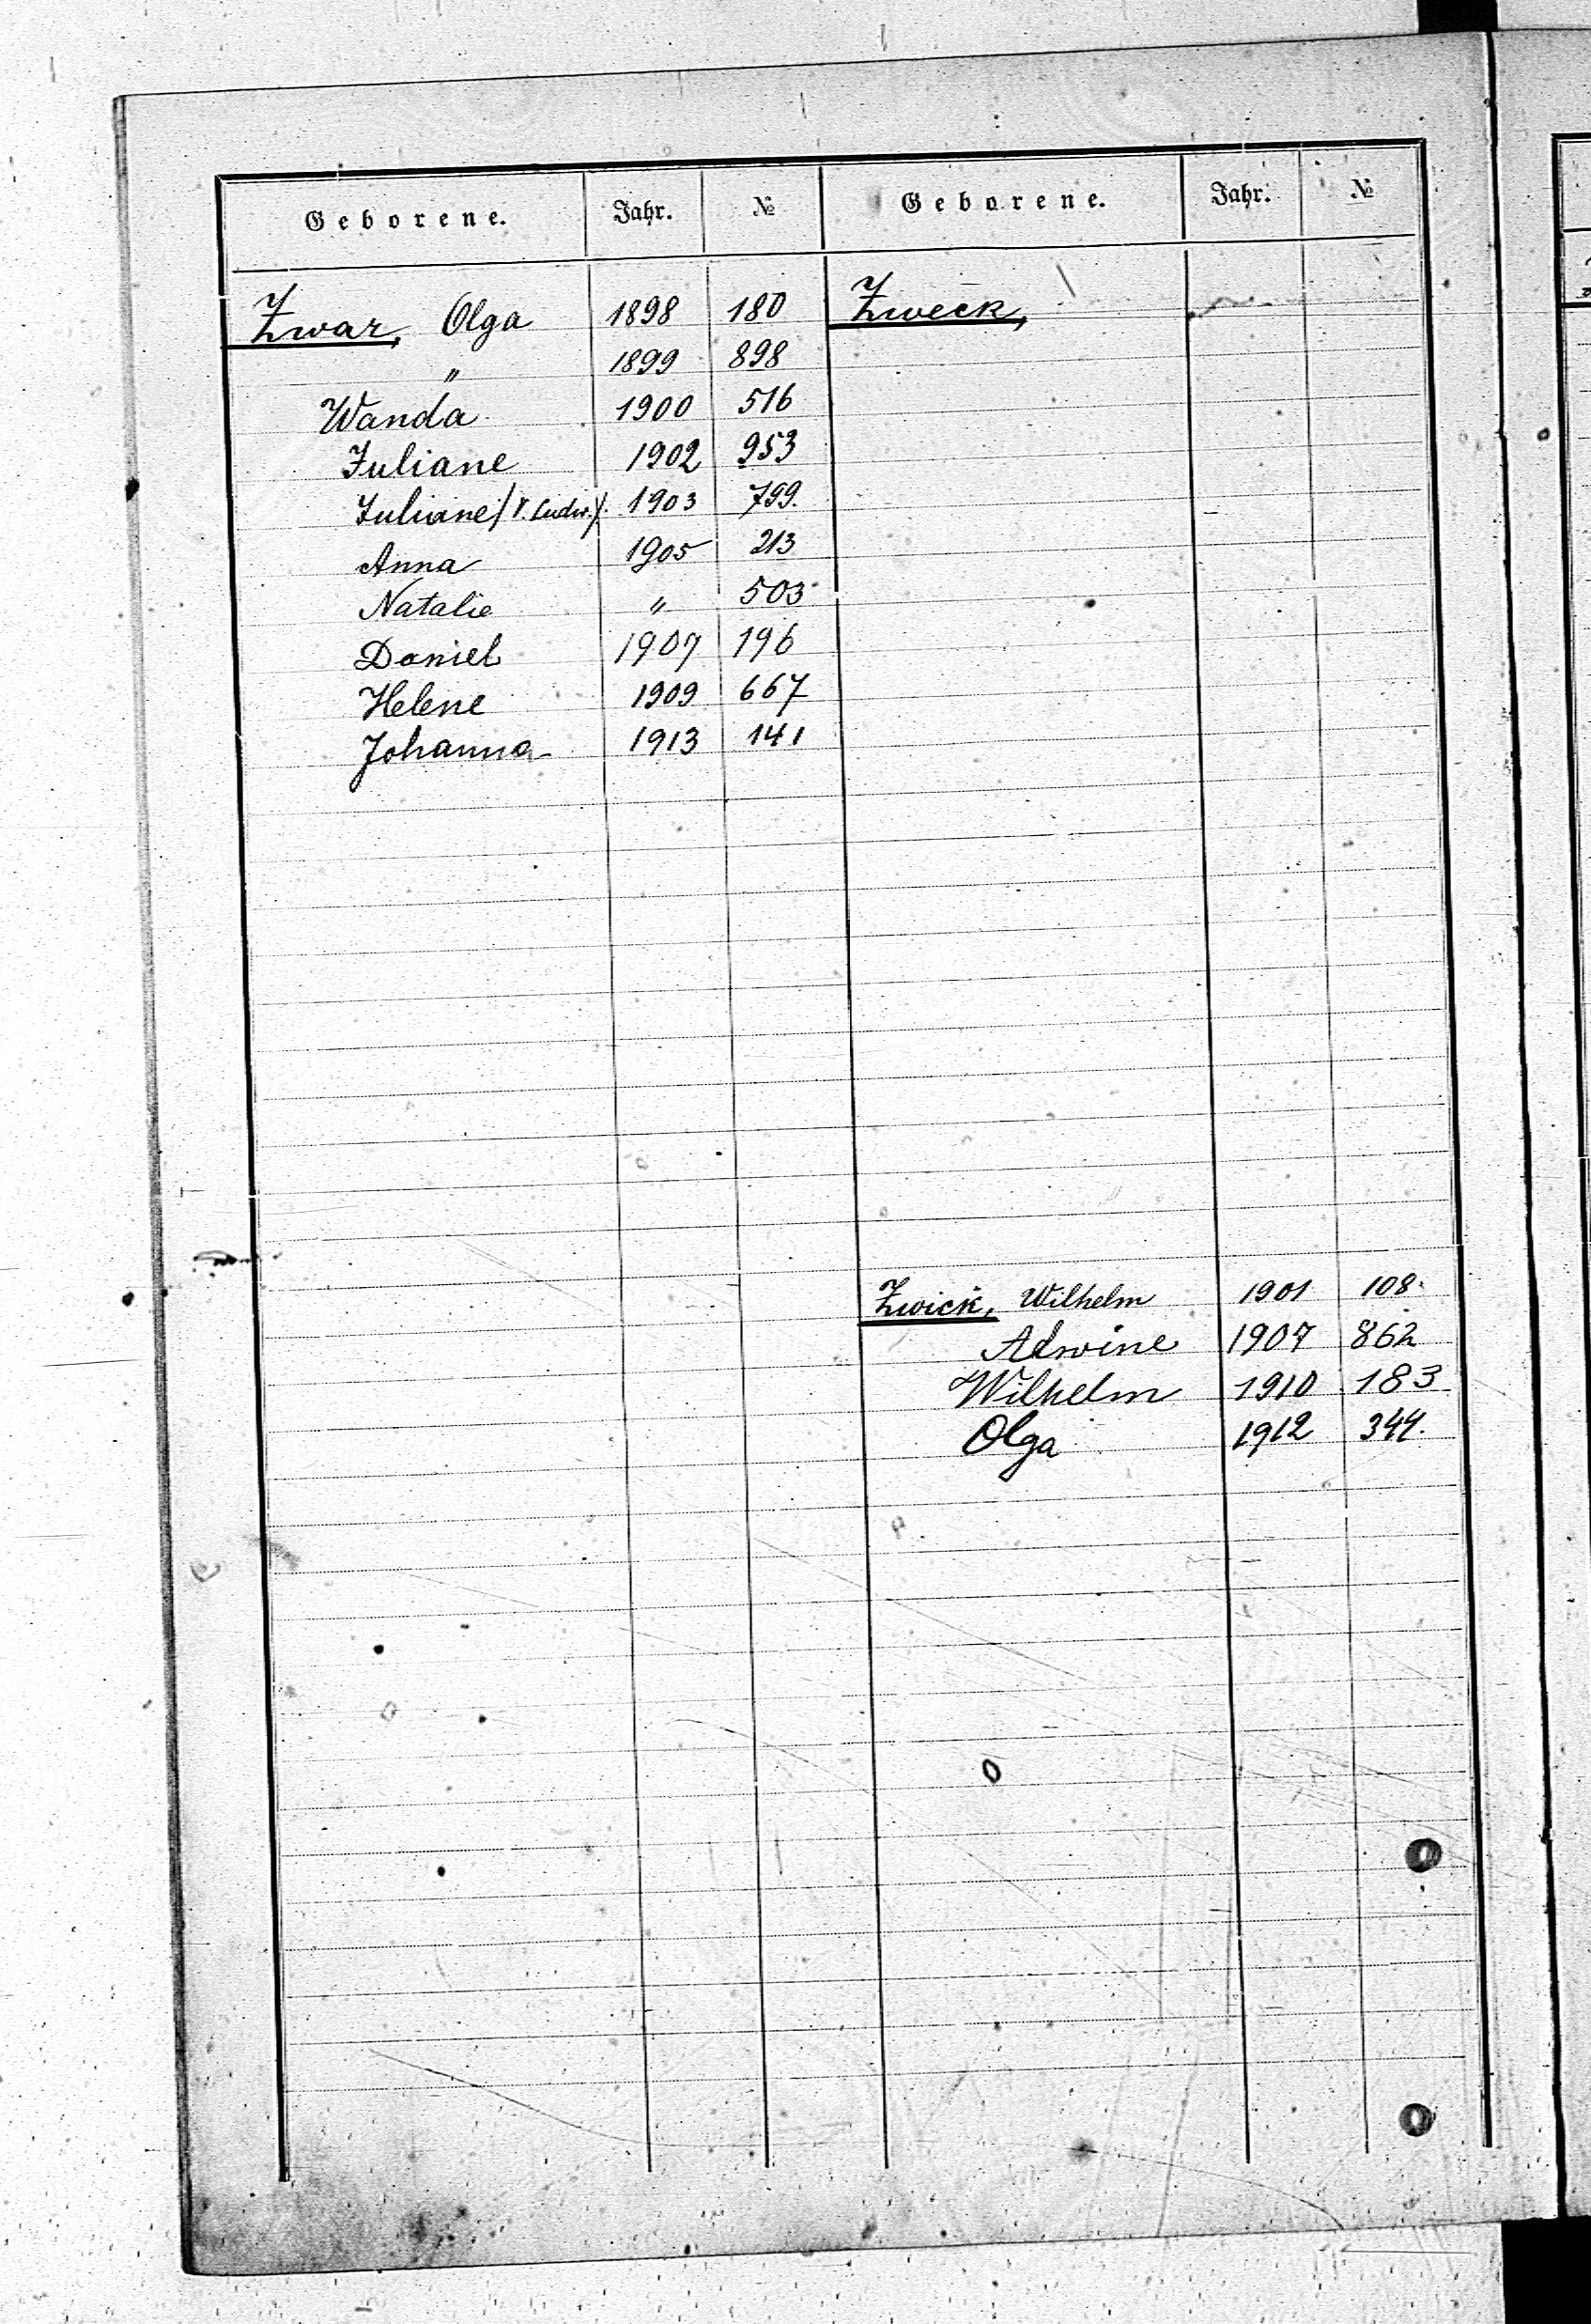 Geborene. Jahr. №
Zwar, Olga 1898 180
" 1899 898
Wanda 1900 516
Juliane 1902 953
Juliane /V. Ludw./. 1903 799.
Anna 1905 213
Natalie " 503
Daniel 1907 196
Helene 1909 667
Johanna 1913 141
Geborene. Jahr. №
Zweck,
Zwick, Wilhelm 1901 108.
Adwine 1907 862
Wilhelm 1910 183
Olga 1912 344.